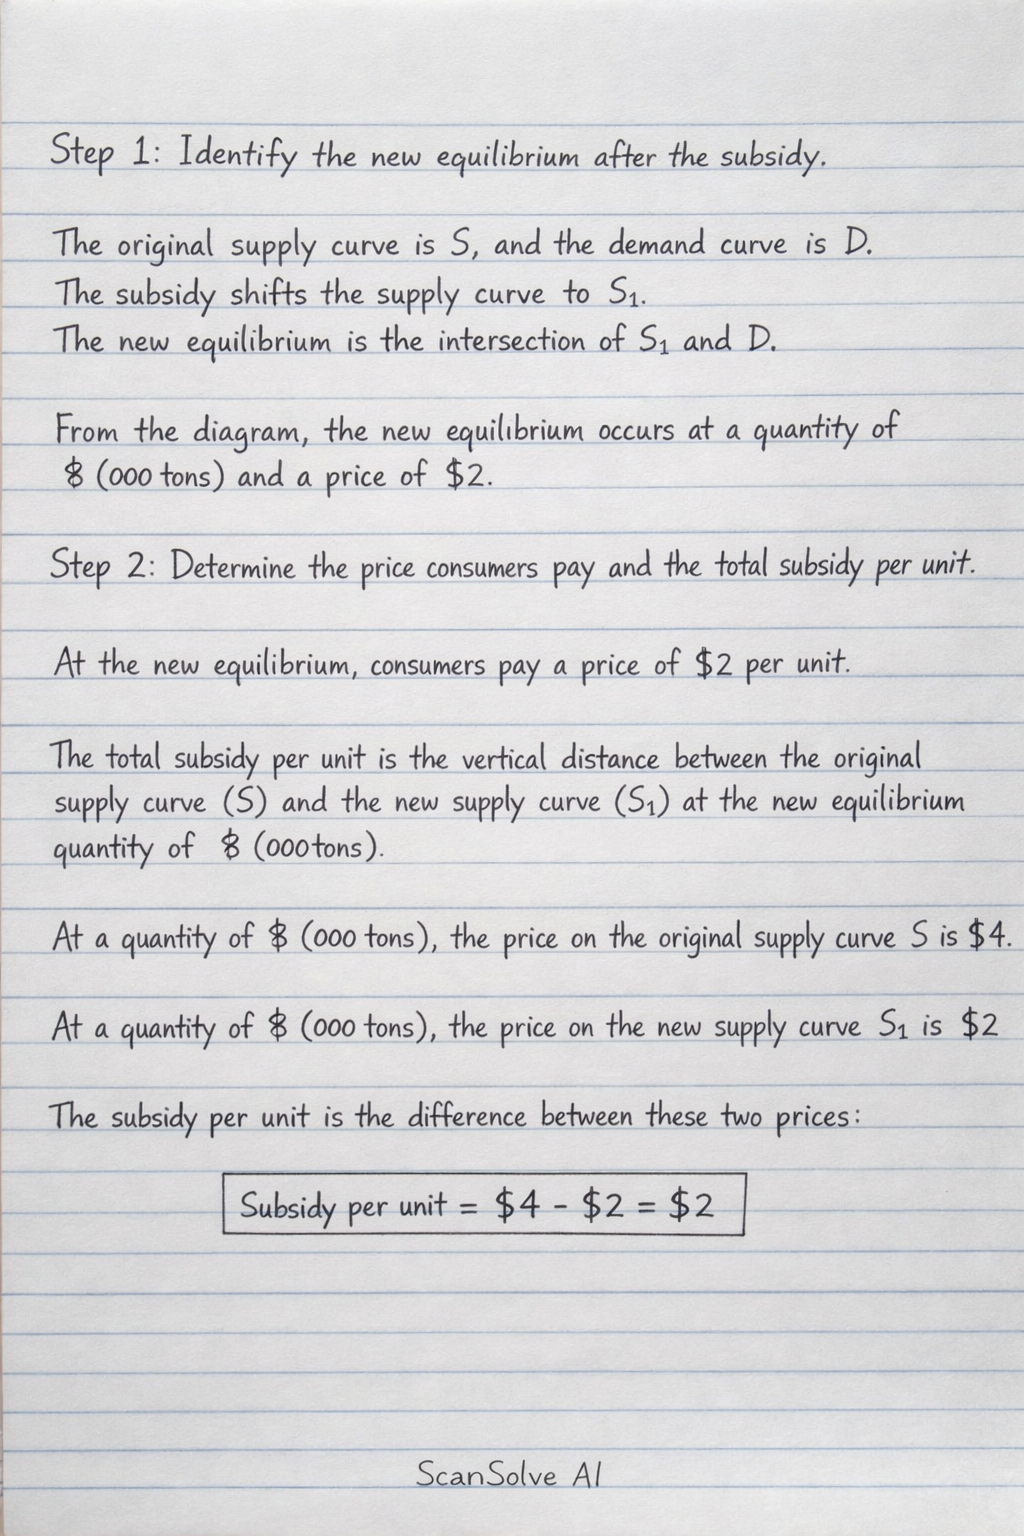 Step 1: Identify the new equilibrium after the subsidy.
The original supply curve is S, and the demand curve is D.
The subsidy shifts the supply curve to S₁.
The new equilibrium is the intersection of S₁ and D.
From the diagram, the new equilibrium occurs at a quantity of
$ (000 tons) and a price of $2.
Step 2: Determine the price consumers pay and the total subsidy per unit.
At the new equilibrium, consumers pay a price of $2 per unit.
The total subsidy per unit is the vertical distance between the original
supply curve (S) and the new supply curve (S₁) at the new equilibrium
quantity of $ (000 tons).
At a quantity of $ (000 tons), the price on the original supply curve S is $4.
At a quantity of $ (000 tons), the price on the new supply curve S₁ is $2
The subsidy per unit is the difference between these two prices:
Subsidy per unit = $4 - $2 = $2
ScanSolve AI